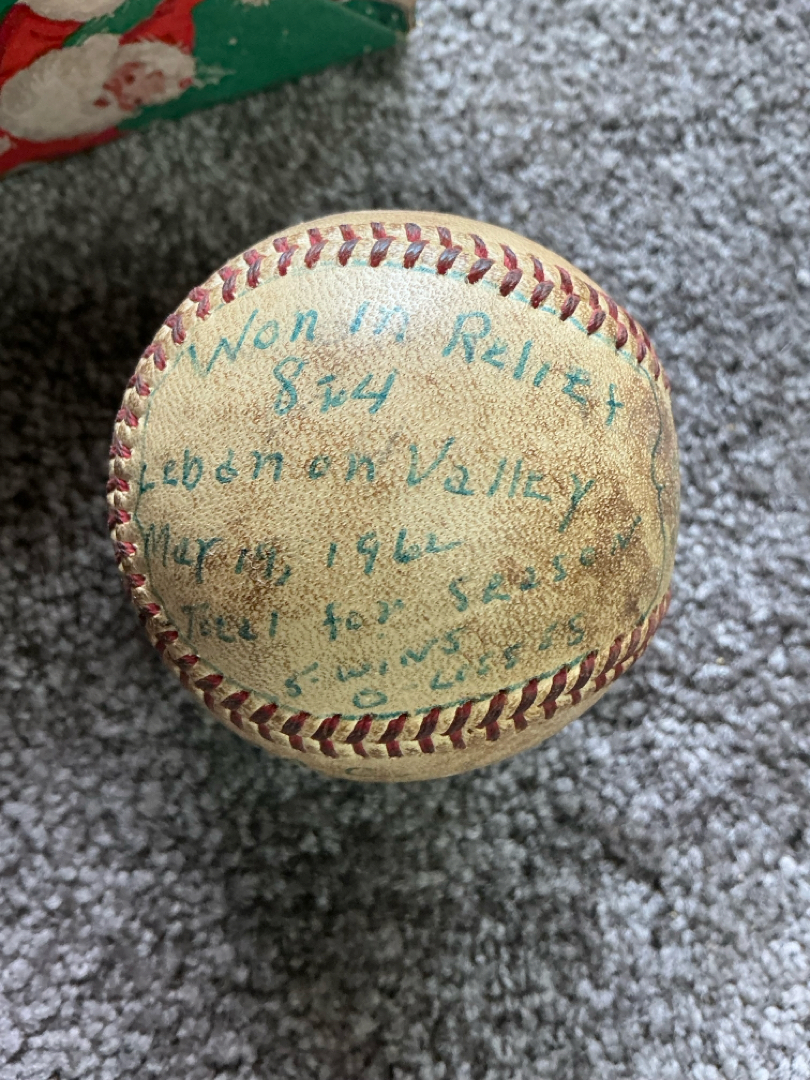 Won in Relief
8 to 4
Lebanon Valley
May 19, 1962
Total for Season
5-WINS
0-LOSSES